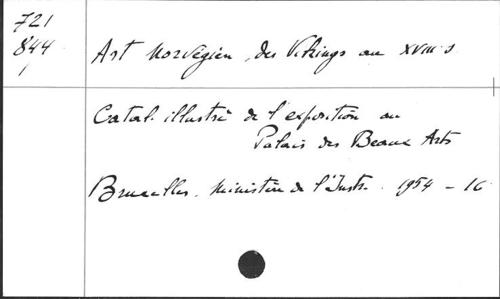 721
844
1
Art Norvégien, des Vikings au XVIII s
Catal. illustré de l'exposition au
Palais des Beaux Arts
Bruxelles. Ministère de l'Instr. 1954 - 16